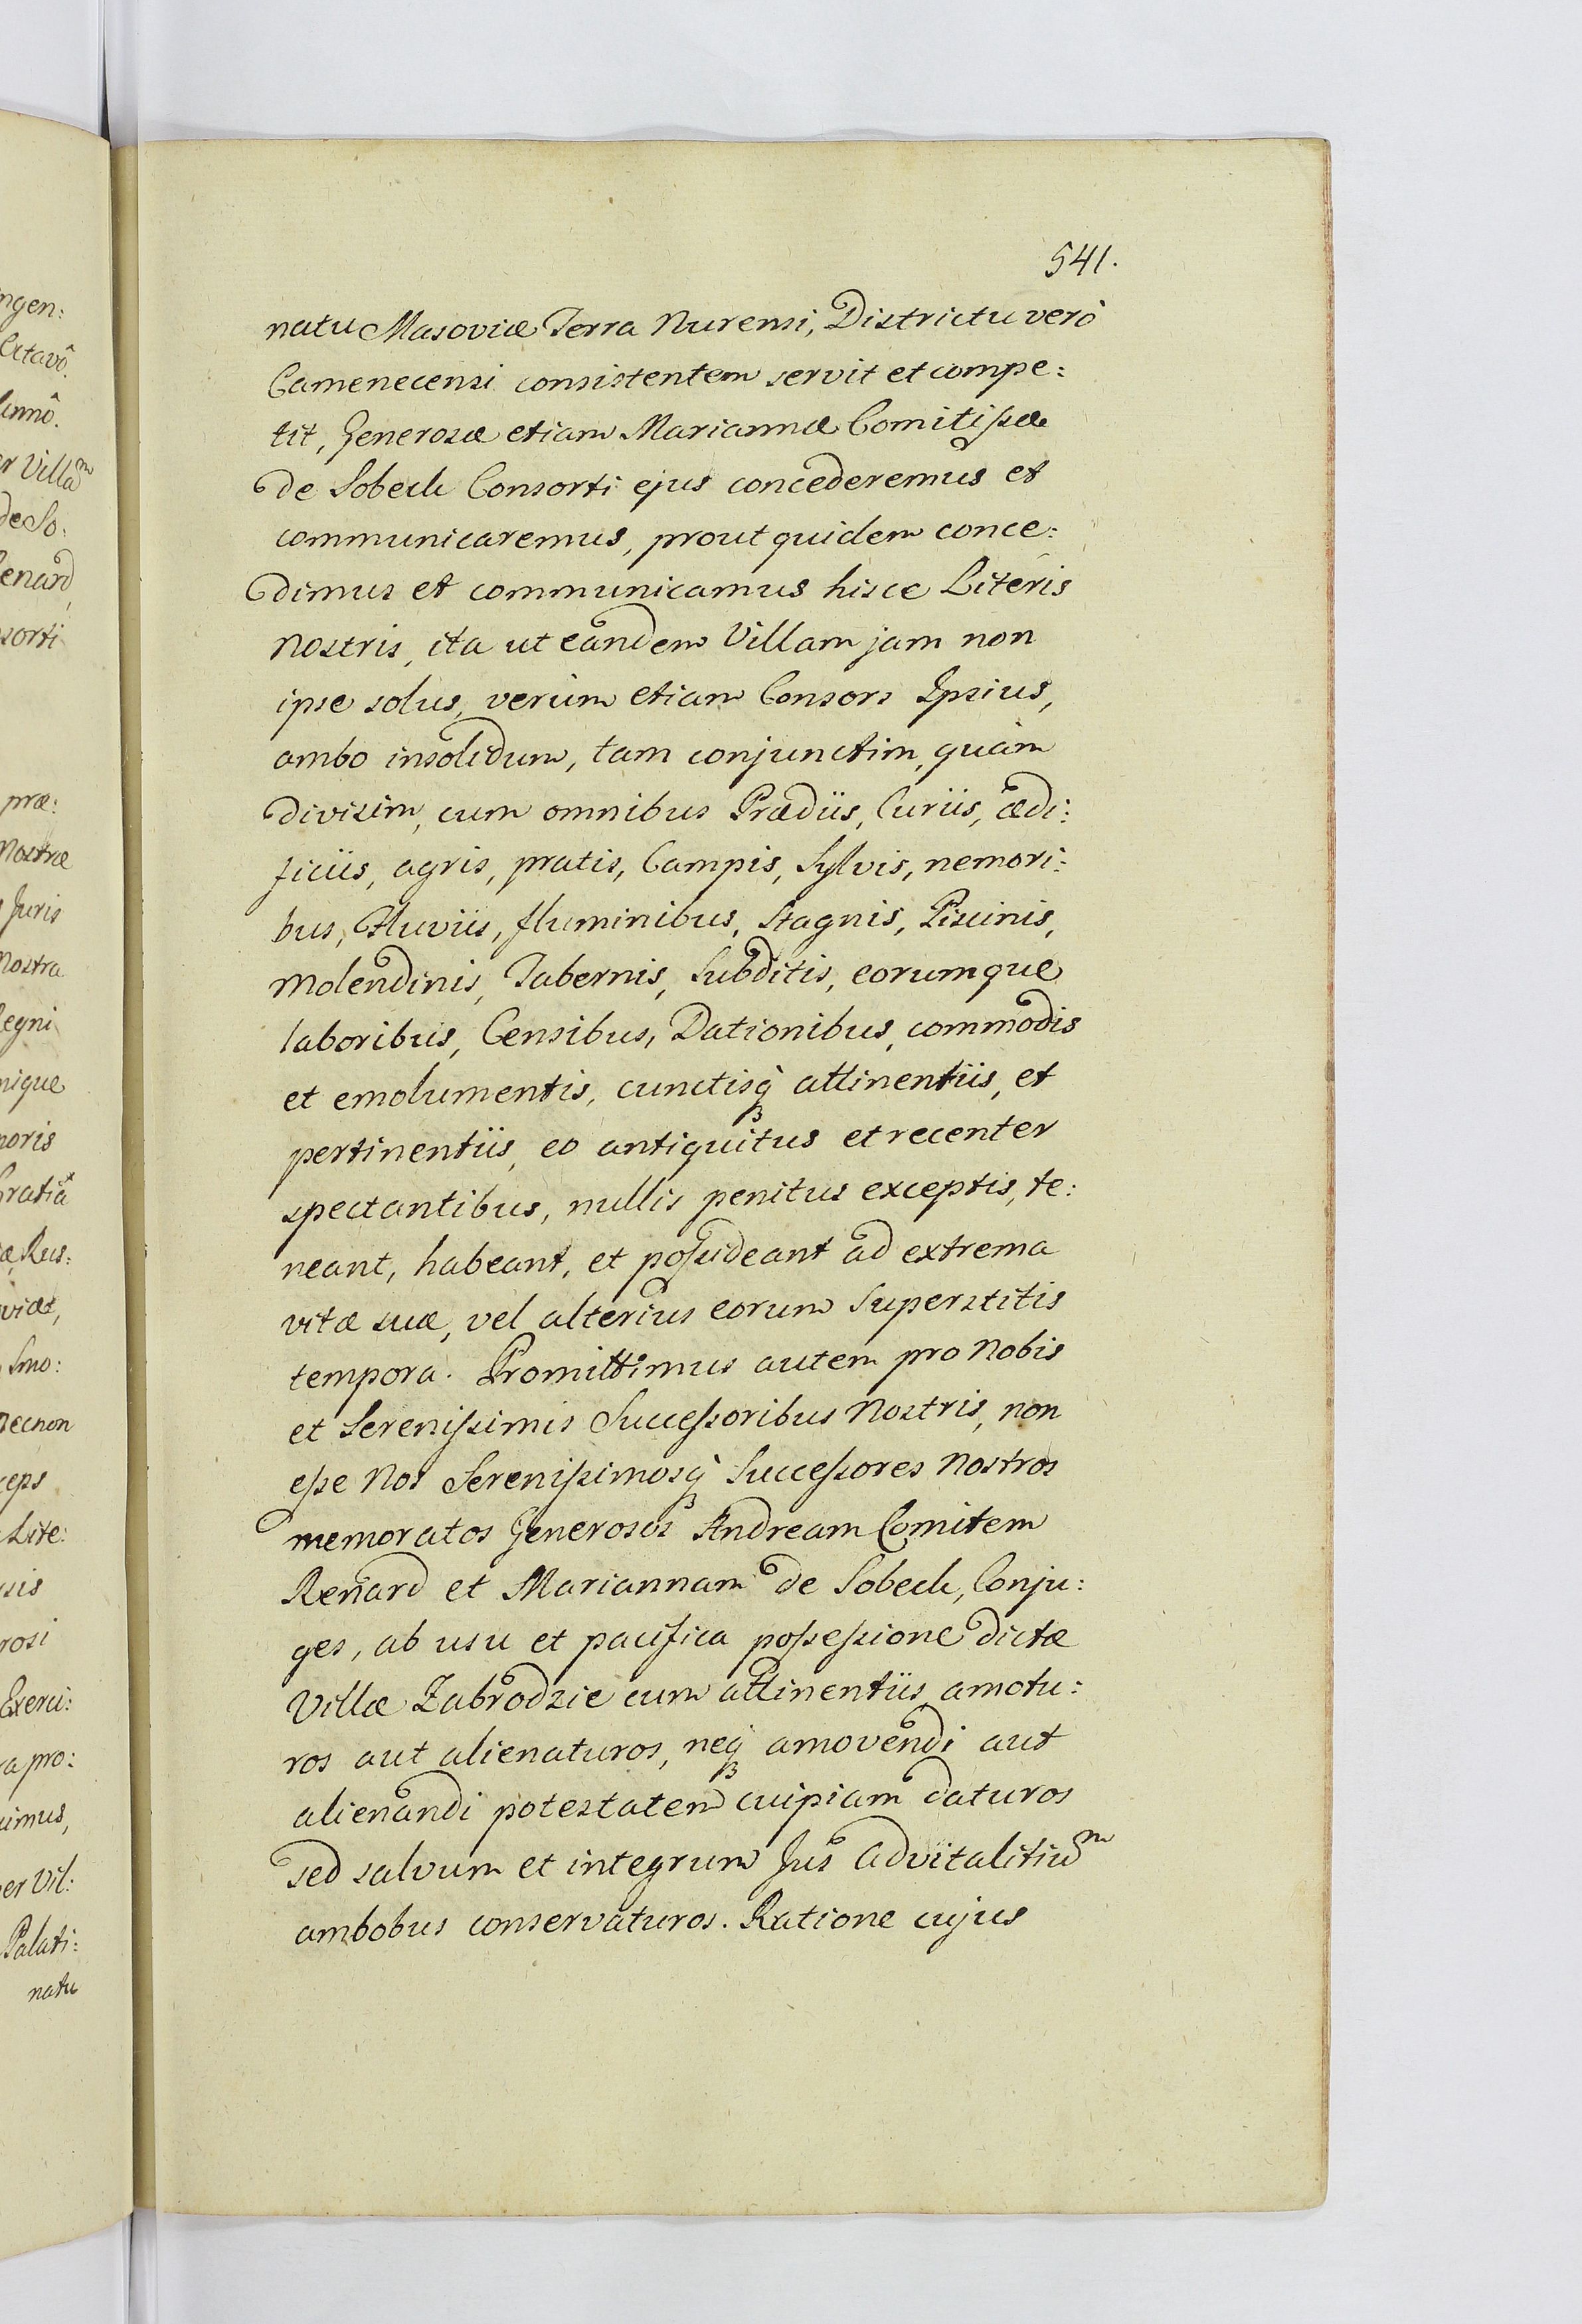 541.
natu Masoviæ Terra Nurensi, Districtu verò
Camenecensi consistentem servit et compe:
tit, Generosæ etiam Mariannæ Comitißæ
de Sobeck Consorti ejus concederemus et
communicaremus, prout quidem conce:
dimus et communicamus hisce Literis
Nostris, ita ut eandem Villam jam non
ipse solus, verùm etiam Consors Ipsius,
ambo insolidum, tam conjunctim, quàm
divisim, cum omnibus Prædiis, Curiis, ædi:
ficiis, agris, pratis, Campis, Sylvis, nemori:
bus, Fluviis, fluminibus, Stagnis, Piscinis,
Molendinis, Tabernis, Subditis, eorumque
laboribus, Censibus, Dationibus, commodis
et emolumentis, cunctisq́ attinentiis, et
pertinentiis, eo antiquitus et recenter
spectantibus, nullis penitus exceptis, te:
neant, habeant, et poßideant ad extrema
vitæ suæ, vel alterius eorum Superstitis
tempora. Promittimus autem pro Nobis
et Serenißimis Succeßoribus Nostris, non
eße Nos Serenißimosq́ Succeßores Nostros
memoratos Generosos Andream Comitem
Renard et Mariannam de Sobeck, Conju:
ges, ab usu et pacifica poßeßione dictæ
Villæ Zabrodzie cum attinentiis amotu:
ros aut alienaturos, neq́ amovendi aut
alienandi potestatem cuipiam daturos
sed salvum et integrum Jus advitalitiũ
ambobus conservaturos. Ratione cujus
ngen:
Octavô.
Annô.
er Villam
de So:
Renard,
sorti
præ:
Nostræ
Juris
Nostra
Regni
nique
noris
Gratiâ
æ, Rus:
viæ,
Smo:
necnon
ceps
Lite:
sis
rosi
Exerci:
a pro:
uimus,
er Vil:
Palati:
natu